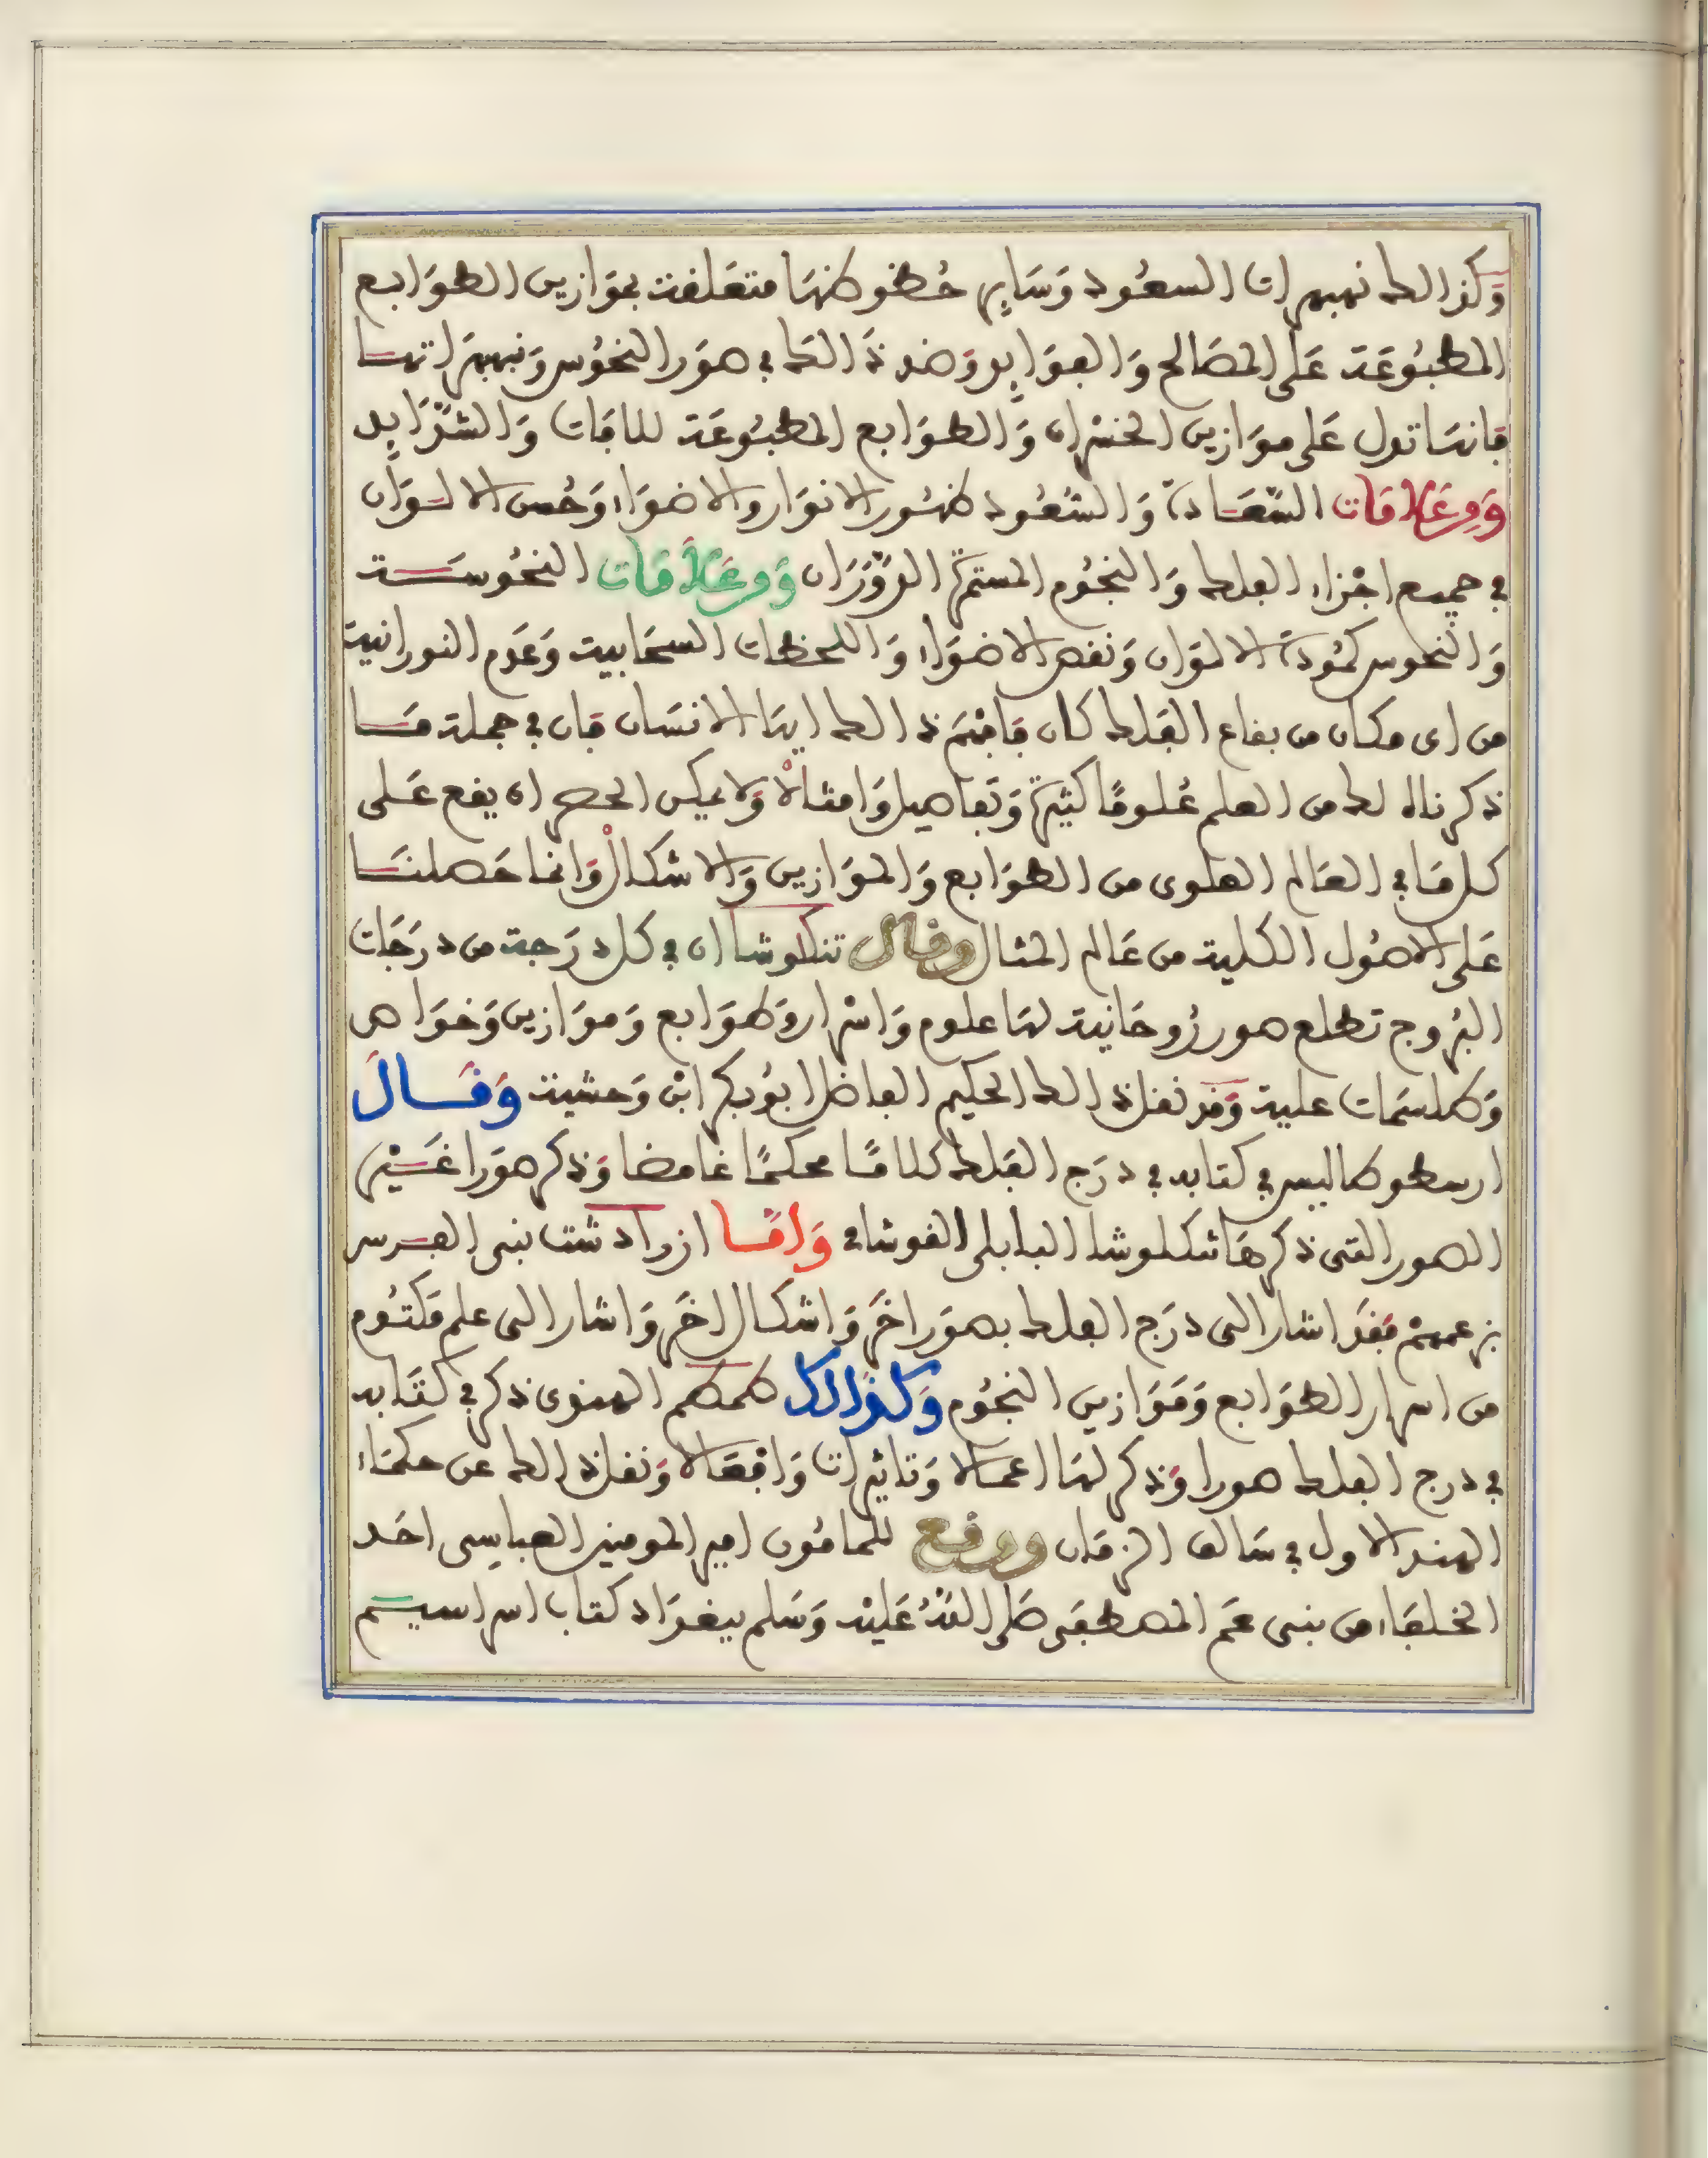 وكذالك نهبهرات السعود وساير حظوظها متعلقة بموازين الطوابع
المطبوعة على المصالح والفوايد وضد ذالك في صور النحوس ونبهبهراتها
فانها تدل على موازين الخسران والطوابع المطبوعة للافات والشدايد
ومن علامات السعادة والسعود ظهور الانوار والاضواء وحسن الالوان
في جميع اجزاء الفلك والنجوم المستمرة الدوران ومن علامات النحوسة
والنحوس كمودة الالوان ونقص الاضواء واللحظات السحابية وعدم النورانية
من اي مكان من بقاع الفلك كان فافهم ذالك ايها الانسان فان في جملة ما
ذكرناه لك من العلم علوما كثيرة وتفاصيل وامثالا ولا يمكن الحصر ان يقع على
كل ما في العالم العلوي من الطوابع والموازين والاشكال وانما حصلنا
على الاصول الكلية من عالم المثال وقال تنكلوشا ان في كل درجة من درجات
البروج تطلع صور روحانية لها علوم واسرار وطوابع وموازين وخواص
وطلسمات علية وقد نقل ذالك الحكيم الفاضل ابو بكر ابن وحشية وقال
ارسطوطاليس في كتابه في درج الفلك كلاما محكما غامضا وذكر صورا غير
الصور التي ذكرها تنكلوشا البابلي القوشاني واما ازرادشت نبي الفرس
بزعمهم فقد اشار الى درج الفلك بصور اخر واشكال اخر واشار الى علم مكتوم
من اسرار الطوابع وموازين النجوم وكذالك طمطم الهندي ذكر في كتابه
في درج الفلك صورا وذكر لها اعمالا وتاثيرات وافعالا ونقل ذالك عن حكماء
الهند الاول في سالف الزمان ووقع للمامون امير المومنين العباسي احد
الخلفاء من بني عم المصطفى صلى الله عليه وسلم ببغداد كتاب اسراسيم